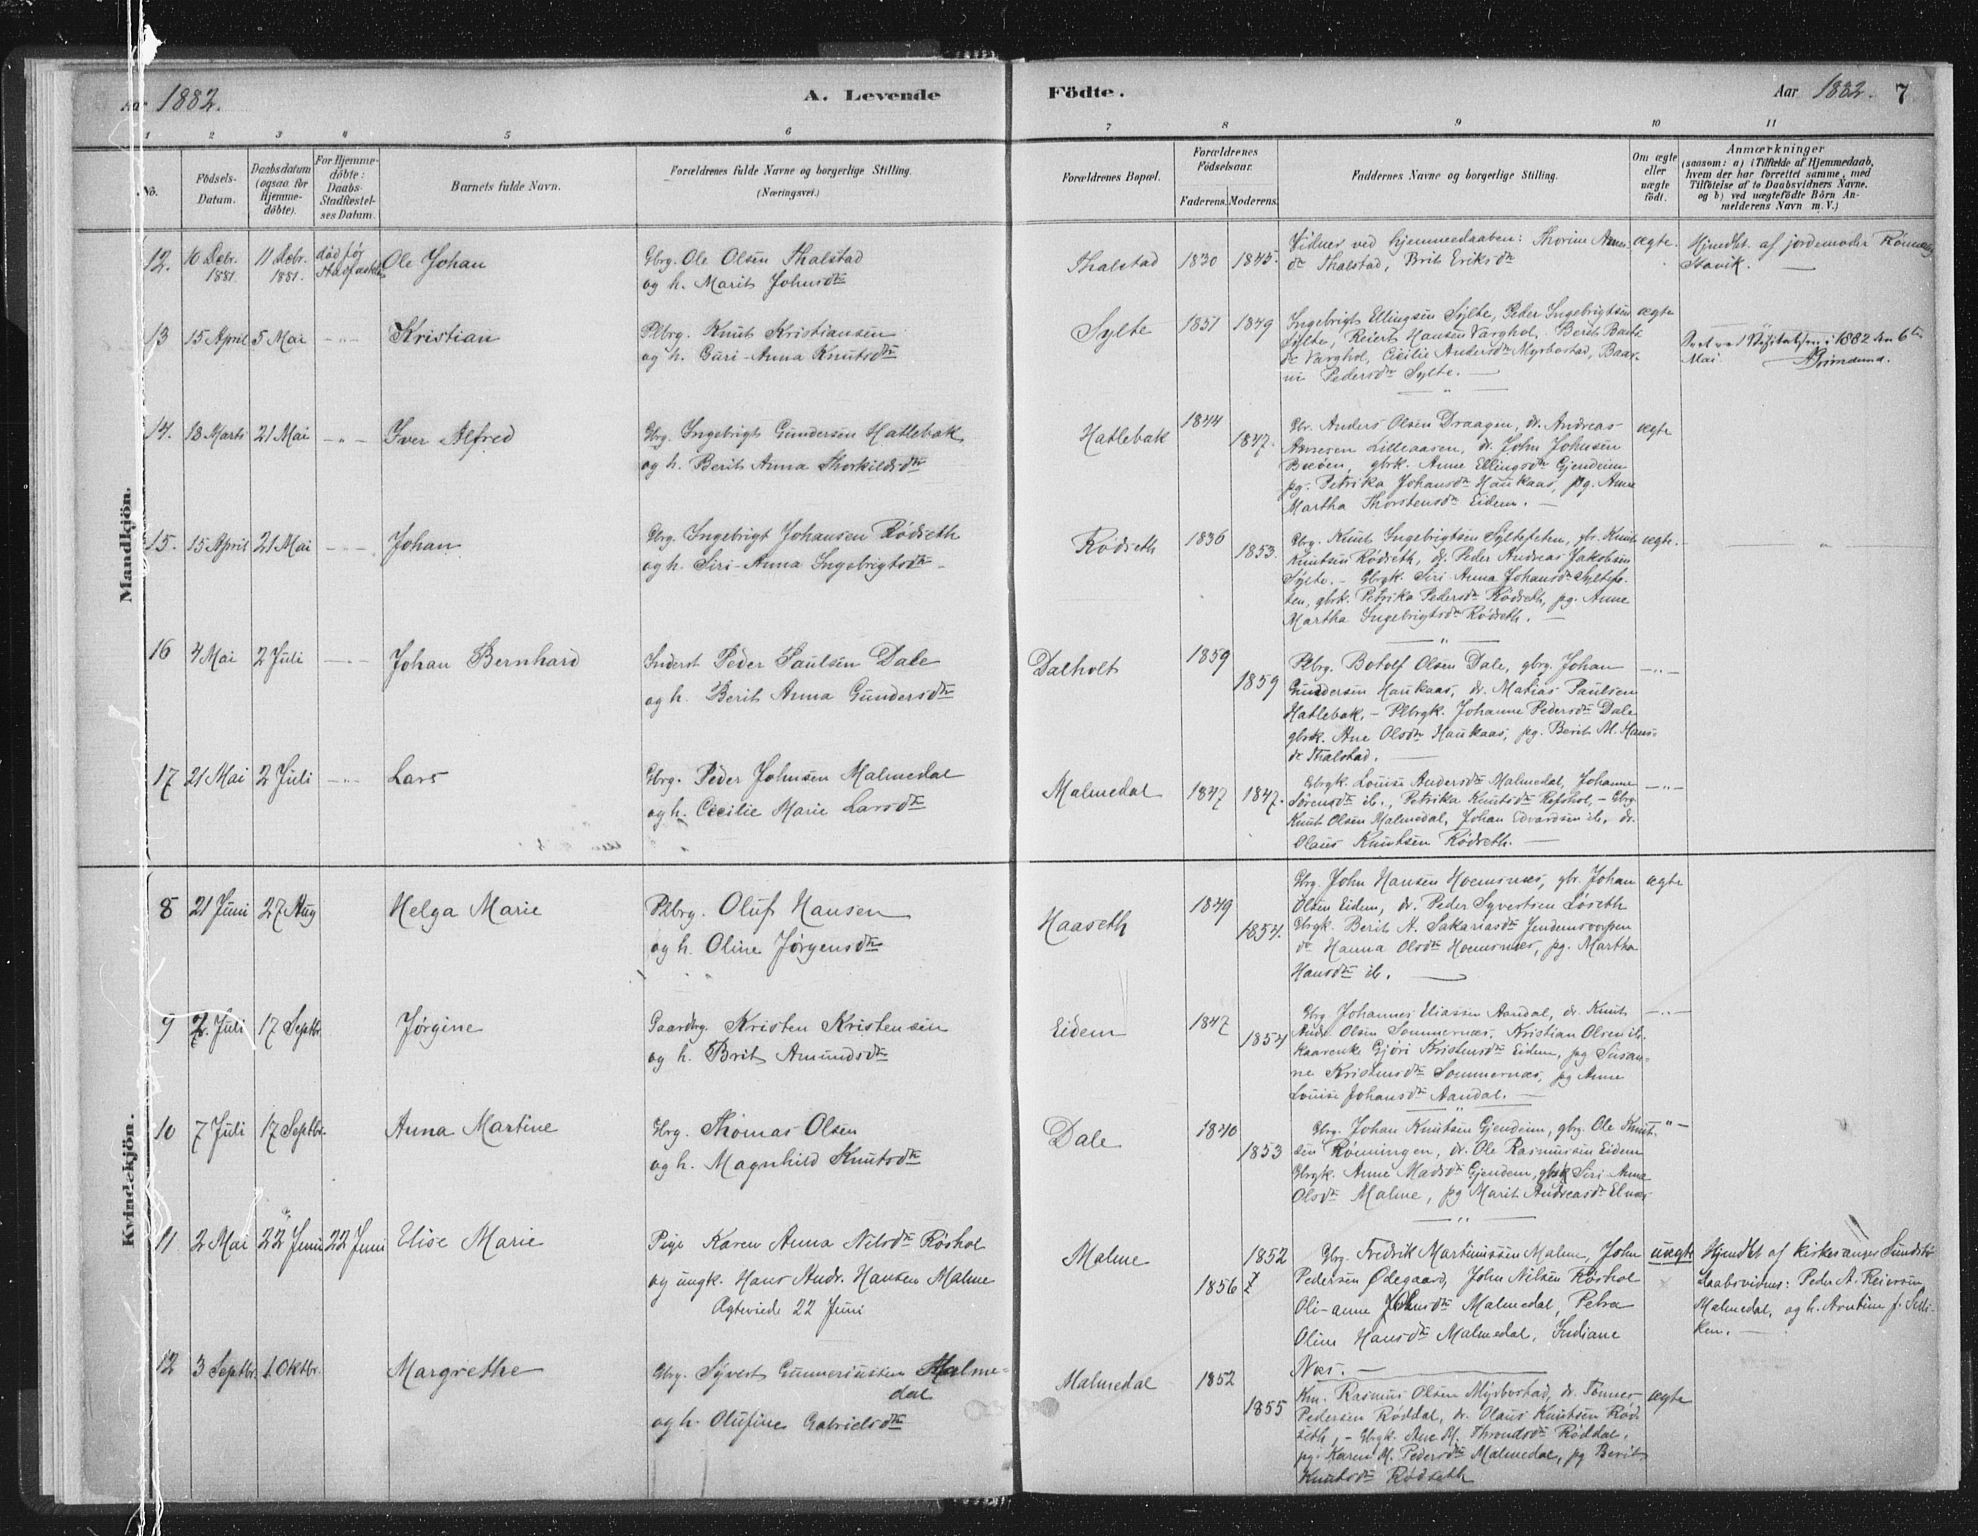 Aar 1882.
A. Levende
Födte.
Aar 1882. 7
1 2 3 4 5 6 7 8 9 10 11
No.
Födsels-
Datum.
Daabsdatum
(ogsaa for
Hjemme-
döbte).
For Hjemme-
döbte:
Daabs-
Stadfæstel-
ses Datum.
Barnets fulde Navn.
Forældrenes fulde Navne og borgerlige Stilling.
(Næringsvei.)
Forældrenes Bopæl.
Forældrenes
Födselsaar.
Faderens. Moderens.
Faddernes Navne og borgerlige Stilling.
Om ægte
eller
uægte
födt.
Anmærkninger
(saasom: a) i Tilfælde af Hjemmedaab,
hvem der har forrettet samme, med
Tilföielse af to Daabsvidners Navne.
og b) ved uægtefödte Börn An-
melderens Navn m. V.)
Mandkjön.
12. 10 Debr. 1881 11 Debr. 1881. død før Stadfæstels Ole Johan
Gbrg. Ole Olsen Thalstad
og h. Marit Johnsdtr
Thalstad 1830 1845.
Vidner ved hjemmedaaben: Thorine Arnes-
dtr Thalstad, Brit Eriksdtr
ægte.
Hjmdbt. af jordemoder
Stavik. —
13 15 April 5 Mai -"- Kristian
Plbrg. Knut Kristiansen
og h. Guri-Anna Knutsdtr
Sylte 1851 1849
Ingebrigt Ellingsen Sylte, Peder Ingebrigtsen
Sylte, Reiert Hansen Varghol, Berit
dr Varghol, Cicilie Andersdtr Myrbostad,
Pedersdtr Sylte. —
ægte
1882 den 6te
Mai.
14. 13 Marts 21 Mai -"- Iver Alfred
Gbrg. Ingebrigt Gundersen Hatlebak
og h. Berit Anna Thorkildsdtr
Hatlebak 1844 1847.
Gbr. Anders Olsen Draagen, dr. Andreas
Arnesen Lilleaasen, dr. John Johnsen
gbrk. Anne Ellingsdtr Gjendem
pg. Petrika Johansdtr Haukaas, pg. Anne
Martha Thorstensdtr Eidem. —
ægte
15. 15 April 21 Mai -"- Johan
Gbrg. Ingebrigt Johansen Rødseth
og h. Siri-Anna Ingebrigtsdtr
Rødseth 1836 1853.
Gbrg. Knut Ingebrigtsen Syltefeten, gbr. Knut
Knutsen Rødseth, dr. Peder Andreas Jakobsen
Sylte. – Gbrgk. Siri Anna Johansdtr Syltefe-
ten, gbrk. Petrika Pedersdtr Rødseth, pg. Anne
Martha Ingebrigtsdtr Rødseth. —
ægte. — " —
16 4 Mai 2 Juli -"- Johan Bernhard
Inderst Peder Paulsen Dale
og h. Berit Anna Gundersdtr
Dalholt 1859 1859
Plbrg. Botolf Olsen Dale, gbrg. Johan
Gundersen Haukaas, dr. Matias Paulsen
Hatlebak, – Plbrgk. Johanne Pedersdtr Dale
gbrk. Ane Olsdtr Haukaas, pg. Berit M. Hans-
dr Thalstad. —
-"-
17 21 Mai 2 Juli -"- Lars
Gbrg. Peder Johnsen Malmedal
og h. Cecilie Marie Larsdtr
Malmedal 1847 1847.
Gbrgk. Louise Andersdtr Malmedal, Johanne
Sørensdtr ib., Petrika Knutsdtr Røshol, – Gbrg.
Knut Olsen Malmedal, Johan Edvardsen ib., dr.
Olaus Knutsen Rødseth. —
-"-
Kvindekjön.
8 21 Juni 27 Aug Helga Marie
Plbrg. Oluf Hansen
og h. Oline Jørgensdtr
Haaseth 1849 1854.
Gbrg. John Hansen Hoemsnæs, gbr. Johan
Olsen Eidem, dr. Peder Syvertsen Løseth
Gbrgk. Berit A. Sakariasdtr
dr Hanna Olsdtr Hoemsnæs, pg. Martha
Hansdtr ib. —
ægte
9 2. Juli 17 Septbr Jørgine
Gaardbrg. Kristen Kristensen
og h. Brit Amundsdtr
Eidem 1847 1854
Gbrg Johannes Eliassen Aandal, dr. Knut
Andr Olsen Sommernæs, Kristian Olsen ib.
Gjøri Kristensdtr Eidem, pg Susan-
ne Kristensdtr Sommernæs, pg Anne
Louise Johansdtr Aandal. —
-"-
10 7 Juli 17 Septbr. Anna Martine
Gbrg. Thomas Olsen
og h. Magnhild Knutsdtr
Dale 1840 1853
Gbrg. Johan Knutsen Gjendem, gbrg. Ole Knut-
sen Rønningen, dr. Ole Rasmussen Eidem
Gbrgk. Anne Madsdtr Gjendem, gbrk Siri-Anna
Olsdtr Malme, pg Marit Andreasdtr Elnæs
" –
11 2 Mai 22 Juni 22 Juni Elise Marie
Pige Karen Anna Nilsdtr Røshol
og ungk. Hans Andr. Hansen Malme
Ægteviede 22 Juni
Malme 1856 1852
Gbrg. Fredrik Martinussen Malme, John
Pedersen Ødegaard, John Nilsen Røshol
Oli-anne Johnsdtr Malmedal, Petra
Oline Hansdtr Malmedal, Indiane
Næs. —
uægte
Hjmdbt af kirkesanger Sundsbø
Daabsvidner: Peder A. Reiersen
Malmedal, og h.
12 3 Septbr. 1 Oktbr. Margrethe
Gbrg. Syvert Gunneriussen Malme-
dal
og h. Olufine Gabrielsdtr
Malmedal 1852 1855
Rasmus Olsen Myrbostad, dr. Tønner
Pedersen Røddal, dr. Olaus Knutsen Rød-
seth, – Gbrgk. Ane M. Throndsdtr Røddal,
pg. Karen M. Pedersdtr Malmedal, pg Berit
Knutsdtr Rødseth
ægte